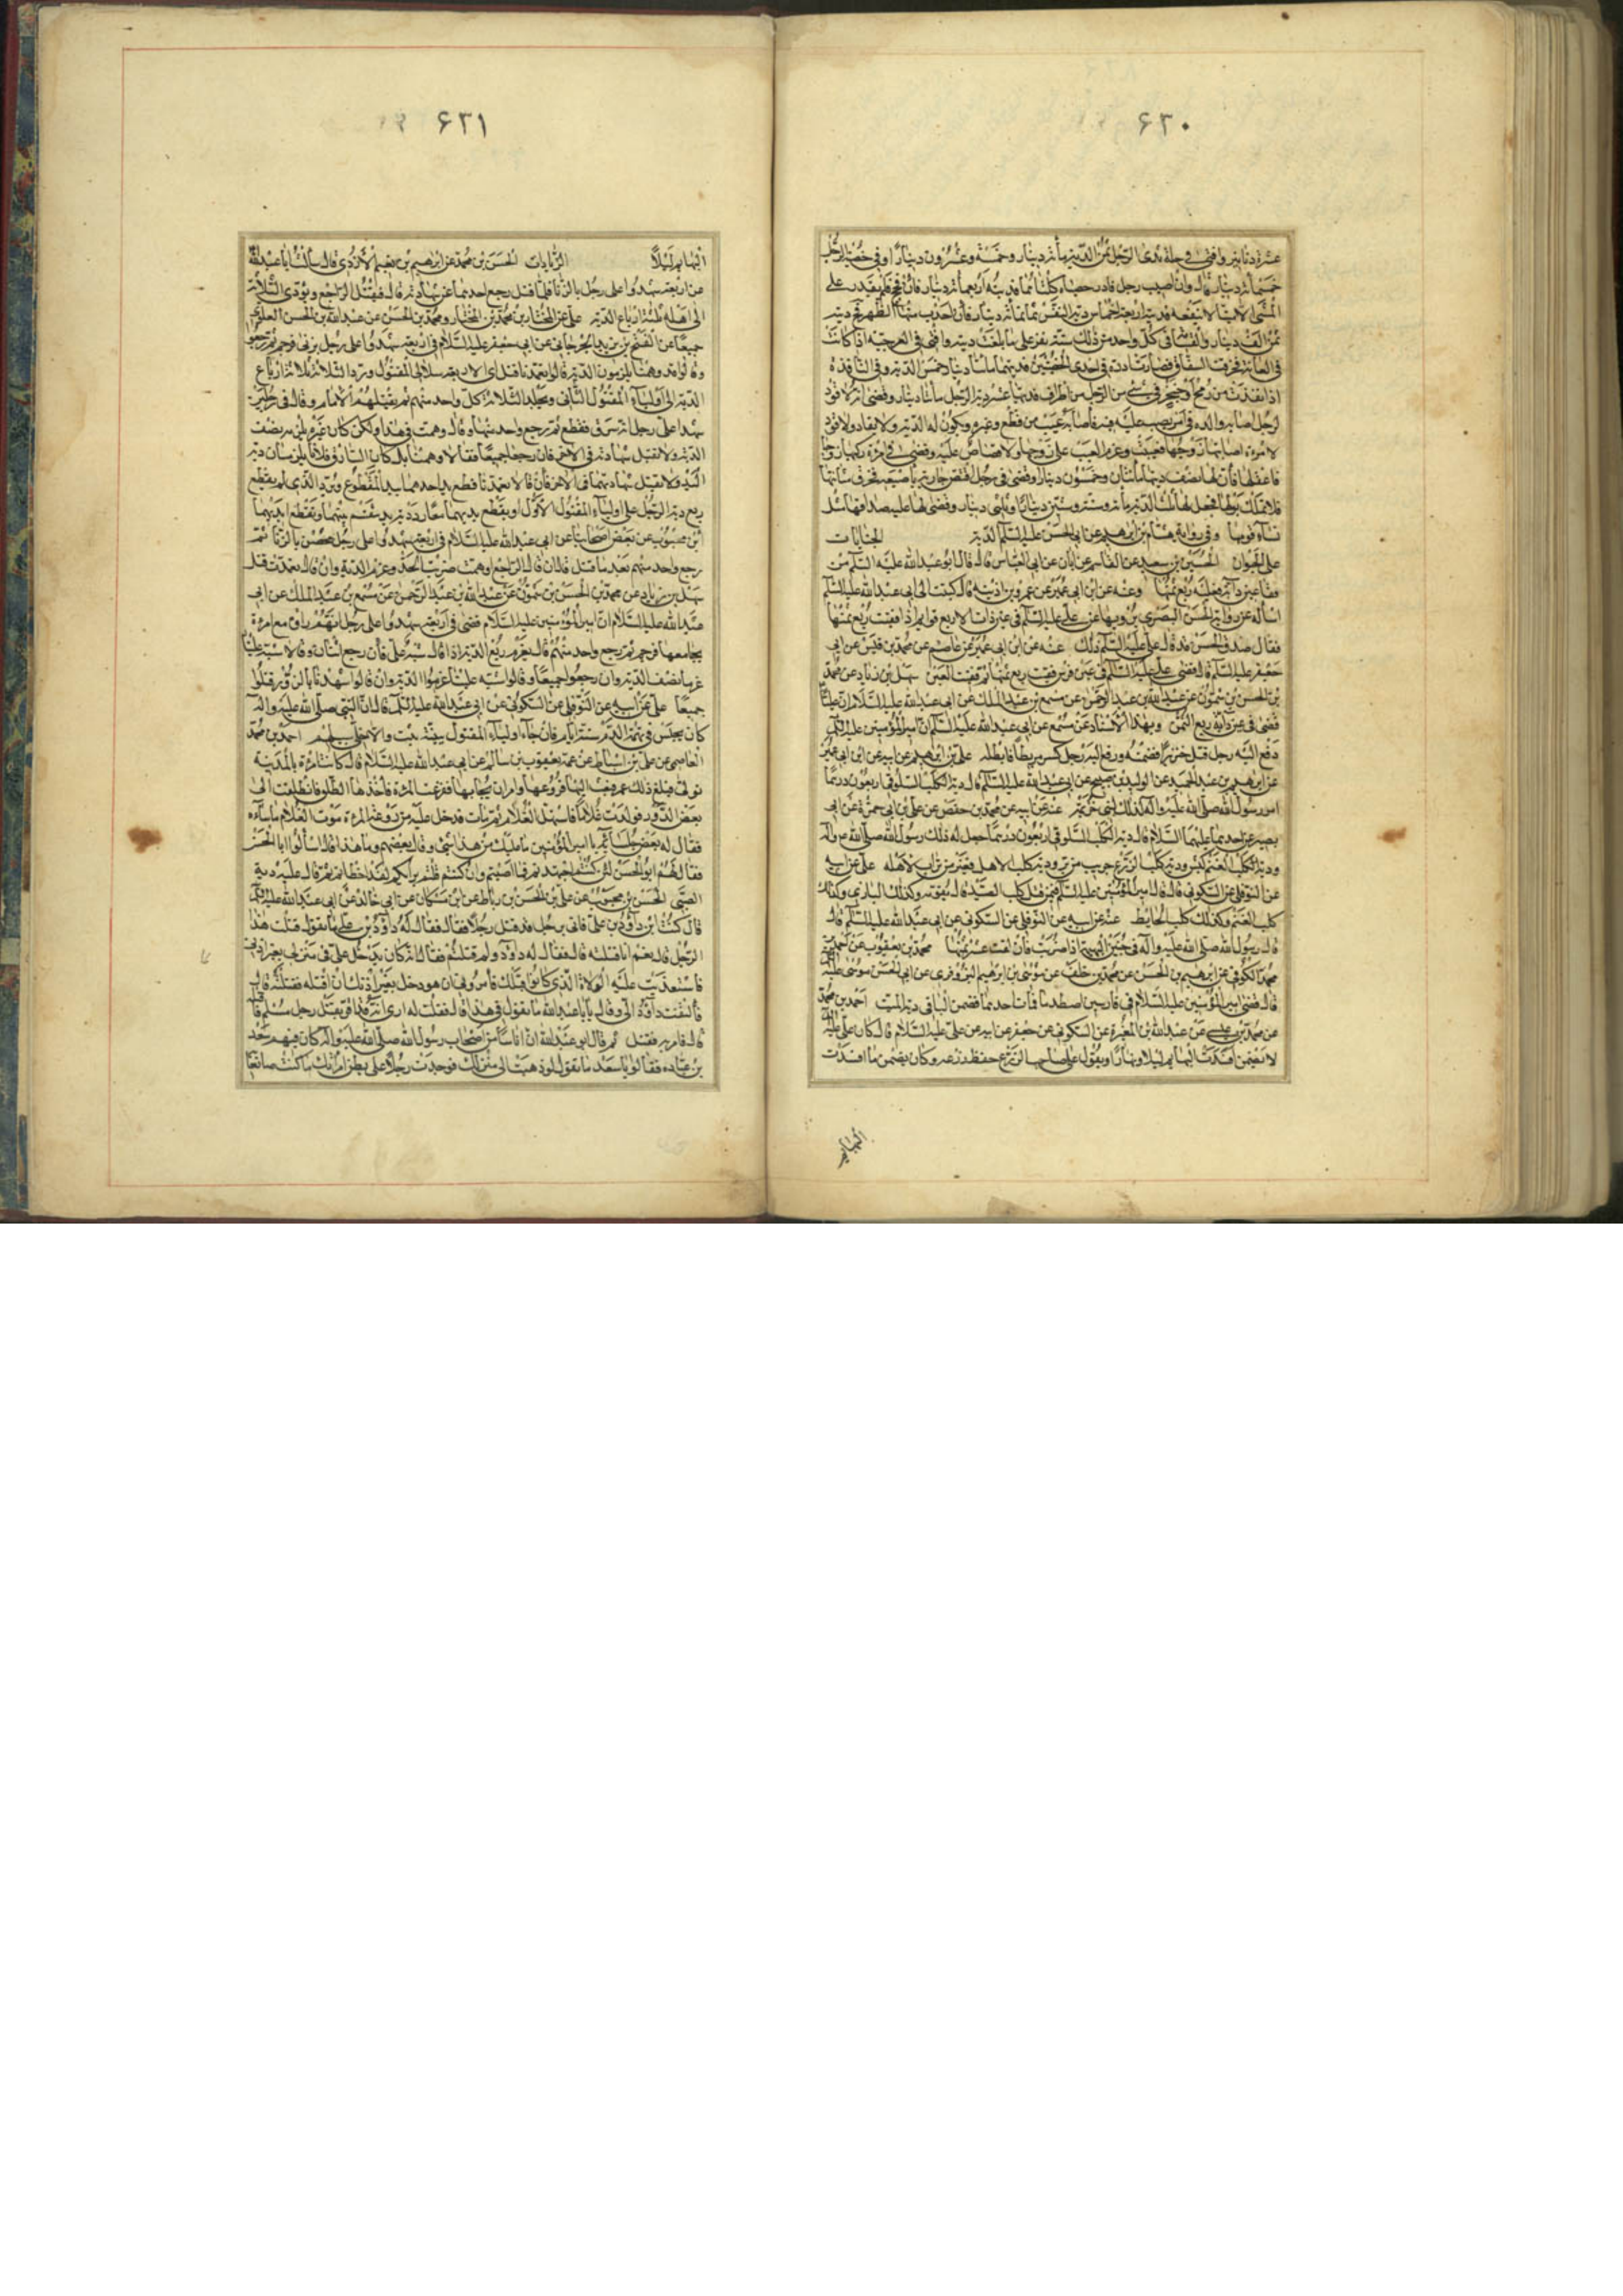 ۶۳۰
عشرة دنانير وافتى في حلمة ثدى الرجل ثمن الدية مأة دينار وخمسة وعشرون دينارا وفي خصية الرجل
خمسمأة دينار قال وان اصيب رجل فادر خصيتاه كلتاهما فديته اربعمأة دينار فان فحج فلم يقدر على
المشى الا مشيا لا ينفعه فديته اربعة اخماس دية النفس ثمانمأة دينار فان احدب منها الظهر تم ديته
الف دينار والقسامة في كل واحد من ذلك ستة نفر على ما بلغت ديته وافتى في الوجيه اذا كانت
في العانة فخرقت السفاق فصارت ادرة في احدى الخصيتين فديتها مائتا دينار خمس الدية وفي النافذة
اذا نفذت من رمح او خنجر في شئ من الرجل من اطرافه فديتها عشر دية الرجل مأة دينار وقضى انه لا قود
لرجل اصابه والده في امر يعيب عليه فيه فاصابه عيب من قطع وغيره ويكون له الدية ولا يقاد ولا قود
لامرءة اصابها زوجها فعيبت وغرم العيب على زوجها ولا قصاص عليه وقضى في امرءة ركبها زوجها
فاعفلها فان لها نصف ديتها مائتان وخمسون دينارا وقضى في رجل افتض جارية باصبعه فخرق مثانتها
فلا تملك بولها فجعل لها ثلث الدية مأة وستة وستين دينارا وثلثى دينار وقضى لها عليه صداقها مثل
نساء قومها وفي رواية هشام بن ابراهيم عن ابي الحسن عليه السلام الدية الجنايات
على الحيوان الحسين بن سعيد عن القاسم عن ابان عن ابي العباس قال قال ابو عبد الله عليه السلام من
فقأ عين دابة فعليه ربع ثمنها وعنه عن ابن ابي عمير عن عمر بن اذينه قال كتبت الى ابي عبد الله عليه السلام
اسأله عن رواية الحسن البصري يرويها عن علي عليه السلام في عين ذات الاربع قوائم اذا فقئت ربع ثمنها
فقال صدق الحسن قد قال علي عليه السلام ذلك عنه عن ابن ابي عمير عن عاصم عن محمد بن قيس عن ابي
جعفر عليه السلام قال قضى علي عليه السلام في عين فرس فقئت ربع ثمنها يوم فقئت العين سهل بن زياد عن محمد
بن الحسن بن شمون عن عبد الله بن عبد الرحمن عن مسمع بن عبد الملك عن ابي عبد الله عليه السلام ان عليا
قضى في عين دابة ربع الثمن وبهذا الاسناد عن مسمع عن ابي عبد الله عليه السلام ان امير المؤمنين عليه السلام
دفع اليه رجل قتل خنزيرا فضمنه ورفع اليه رجل كسر بربطا فابطله علي بن ابراهيم عن ابيه عن ابن ابي عمير
عن ابراهيم بن عبد الحميد عن الوليد بن صبيح عن ابي عبد الله عليه السلام قال دية الكلب السلوقي اربعون درهما
امر رسول الله صلى الله عليه واله كذلك لبنى خزيمة عنه عن ابيه عن محمد بن حفص عن علي بن ابي حمزة عن ابي
بصير عن احدهما عليهما السلام قال دية الكلب السلوقي اربعون درهما جعل له ذلك رسول الله صلى الله عليه واله
ودية الكلب الغنم كبش ودية كلب الزرع جريب من بر ودية كلب الاهل قفيز من تراب لاهله علي عن ابيه
عن النوفلي عن السكوني قال قال امير المؤمنين عليه السلام فيمن قتل كلب الصيد قال يقومه وكذلك البازى وكذلك
كلب الغنم وكذلك كلب الحائط عنه عن ابيه عن النوفلي عن السكوني عن ابي عبد الله عليه السلام قال
قال رسول الله صلى الله عليه واله في جنين البهيمة اذا ضربت فالقت عشر ثمنها محمد بن يعقوب عن احمد بن
محمد الكوفي عن ابراهيم بن الحسن عن محمد بن خلف عن موسى بن ابراهيم البزوفرى عن ابي الحسن موسى عليه السلام
قال قضى امير المؤمنين عليه السلام في فارسين اصطدما فمات احدهما فضمن الباقي دية الميت احمد بن محمد
عن محمد بن عيسى عن عبد الله بن المغيرة عن السكوني عن جعفر عن ابيه عن علي عليه السلام قال كان علي عليه السلام
لا يضمن ما افسدت البهائم ليلا ونهارا ويقول على صاحب الزرع حفظ زرعه وكان يضمن ما افسدت
البهائم
۶۳۱
البهايم ليلا الزيادات الحسن بن محبوب عن ابراهيم بن نعيم الازدى قال سألت ابا عبد الله
عن اربعة شهدوا على رجل بالزنا فلما قتل رجع احدهما عن شهادته قال فقال يقتل الراجع ويؤدى الثلاثة
الى اهله ثلثة ارباع الدية علي عن المختار بن محمد بن المختار ومحمد بن الحسن عن عبد الله بن الحسن العلوي
جميعا عن الفتح بن يزيد الجرجاني عن ابي الحسن عليه السلام في اربعة شهدوا على رجل بزنى فرجم ثم رجعوا
وقالوا قد وهمنا يلزمون الدية قالوا تعمدنا قتل اى الاربعة شاء ولى المقتول ورد الثلاثة ثلاثة ارباع
الدية الى اولياء المقتول الثاني ويجلد الثلاثة كل واحد منهم ثمنين وان شاء الامام وقال في رجلين
شهدا على رجل انه سرق فقطع ثم رجع واحد منهما وقال وهمت في هذا ولكن كان غيره يلزمه نصف
الدية ولا تقبل شهادته في الآخر فان رجعا جميعا فقالا وهمنا بل كان السارق فلانا يلزمان دية
اليد ولا تقبل شهادتهما في الآخر فان قالا تعمدنا قطع يد احدهما بيد المقطوع ويرد الذي لم يقطع
ربع دية الرجل على اولياء المقطوع الاول او يقطع يديهما معا رد دية يد يقسم بينهما وتقطع ايديهما
ابن محبوب عن بعض اصحابنا عن ابي عبد الله عليه السلام في اربعة شهدوا على رجل محصن بالزنا ثم
رجع واحد منهم بعد ما قتل قال ان قال الراجع اوهمت ضرب الحد وغرم الدية وان قال تعمدت قتل
سهل بن زياد عن محمد بن الحسن بن شمون عن عبد الله بن عبد الرحمن عن مسمع بن عبد الملك عن ابي
عبد الله عليه السلام ان امير المؤمنين عليه السلام قضى في اربعة شهدوا على رجل انهم راوه مع امرءة
يجامعها فرجم ثم رجع واحد منهم قال يغرم ربع الدية اذا قال شبه علي فان رجع اثنان وقالا شبه علينا
غرما نصف الدية وان رجعوا جميعا وقالوا شبه علينا غرموا الدية وان قالوا شهدنا بالزور قتلوا
جميعا علي عن ابيه عن النوفلي عن السكوني عن ابي عبد الله عليه السلام قال ان النبي صلى الله عليه واله
كان يحبس في تهمة الدم ستة ايام فان جاء اولياء المقتول ببينة ثبت والا خلى سبيلهم احمد بن محمد
العاصمي عن علي بن اسباط عن عمه يعقوب بن سالم عن ابي عبد الله عليه السلام قال كانت امرءة بالمدينة
تؤتى فبلغ ذلك عمر فبعث اليها فروعها وامر ان يجاء بها ففزعت المرءة فاخذها الطلق فانطلقت الى
بعض الدور فولدت غلاما فاستهل الغلام ثم مات فدخل عليه من روعة المرءة من موت الغلام ما ساءه
فقال له بعض جلسائه يا امير المؤمنين ما عليك من هذا شئ وقال بعضهم وما هذا قال اسألوا ابا الحسن
فقال لهم ابو الحسن لئن كنتم اجتهدتم فما اصبتم وان كنتم قلتم برأيكم لقد اخطأتم ثم قال عليه دية
الصبى الحسن بن محبوب عن علي بن الحسن بن رباط عن ابن مسكان عن ابي خالد عن ابي عبد الله عليه السلام
قال كنت عند داود بن علي فاتى برجل قد قتل رجلا فقال فقال له داود بن علي ما تقول قتلت هذا
الرجل قال نعم انا قتلته قال فقال له داود ولم قتلته فقال انه كان يدخل على في منزلى بغير اذنى
فاستعديت عليه الولاة الذي كانوا قبلك فامروني ان هو دخل بغير اذن ان اقتله فقتلته قال
فالتفت داود الى وقال يا ابا عبد الله ما تقول في هذا قال فقلت له ارى انه قد اقر بقتل رجل مسلم فاقتله
قال فامر به فقتل ثم قال ابو عبد الله ان اناسا من اصحاب رسول الله صلى الله عليه واله كان فيهم سعد
بن عباده فقالوا يا سعد ما تقول لو ذهبت الى منزلك فوجدت رجلا على بطن امرأتك ما كنت صانعا